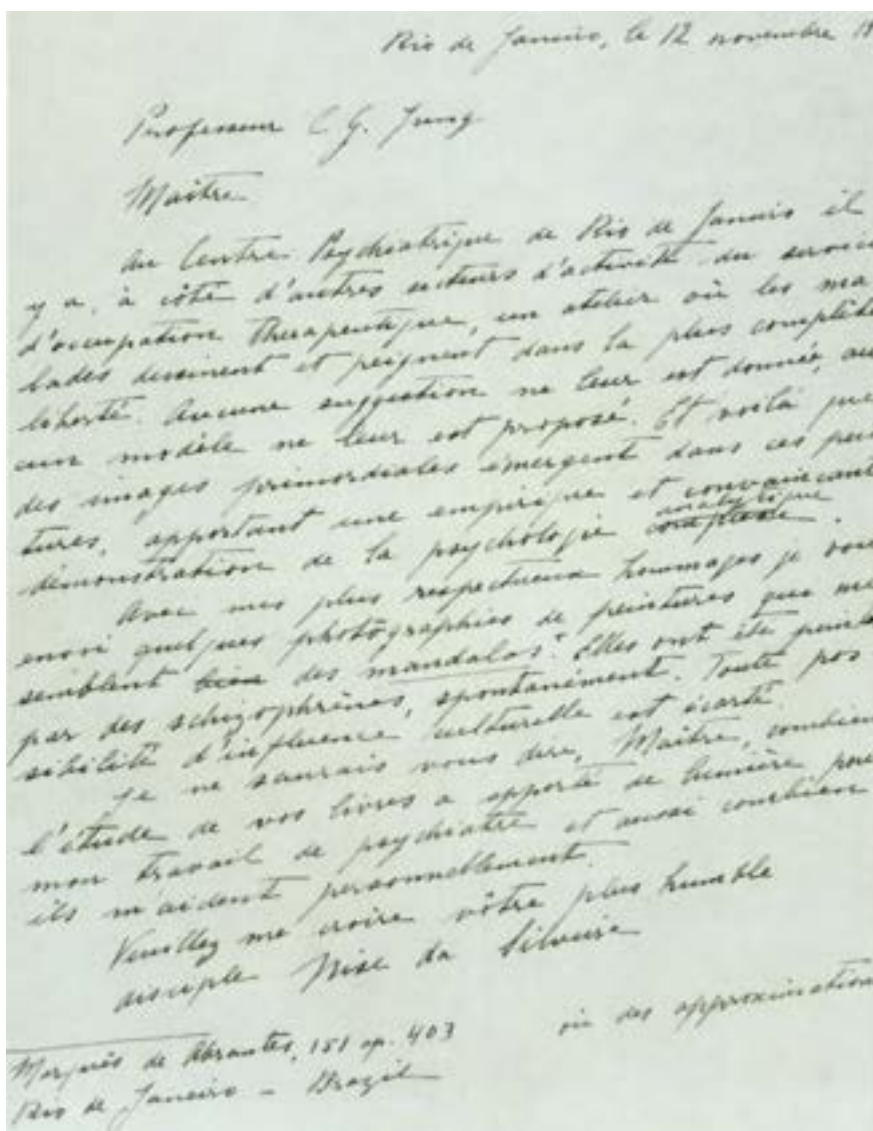 Rio de Janeiro, le 12 novembre 19
Professeur C. G. Jung
Maître
Au Centre Psychiatrique de Rio de Janeiro il
y a, à côté d'autres secteurs d'activité du service
d'occupation thérapeutique, un atelier où les ma
lades dessinent et peignent dans la plus complète
liberté. Aucune suggestion ne leur est donnée, au
cun modèle ne leur est proposé. Et voilà que
des images primordiales émergent dans ces pein
tures, apportant une empirique et convaincant
analytique
démonstration de la psychologie complexe.
Avec mes plus respectueux hommages je vous
envoi quelques photographies de peintures que me
semblent bien des mandalas. Elles ont été peint
par des schizophrènes, spontanément. Toute pos
sibilité d'influence culturelle est écarté.
Je ne saurais vous dire, Maître, combien
l'étude de vos livres a apporté de lumière pour
mon travail de psychiatre et aussi combien
ils m'aident personnellement.
Veuillez me croire vôtre plus humble
disciple Nise da Silveira
ou des approximation
Marquês de Abrantes, 151 ap. 403
Rio de Janeiro – Brazil